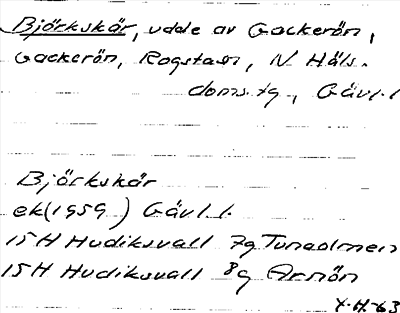 Björkskär, udde av Gackerön,
Gackerön, Rogsta sn, N. Häls.
doms. tg, Gävl. l
Björkskär
ek (1959 ) Gävl. l.
15 H Hudiksvall 7g Tunaolmen
15 H Hudiksvall 8g Arnön